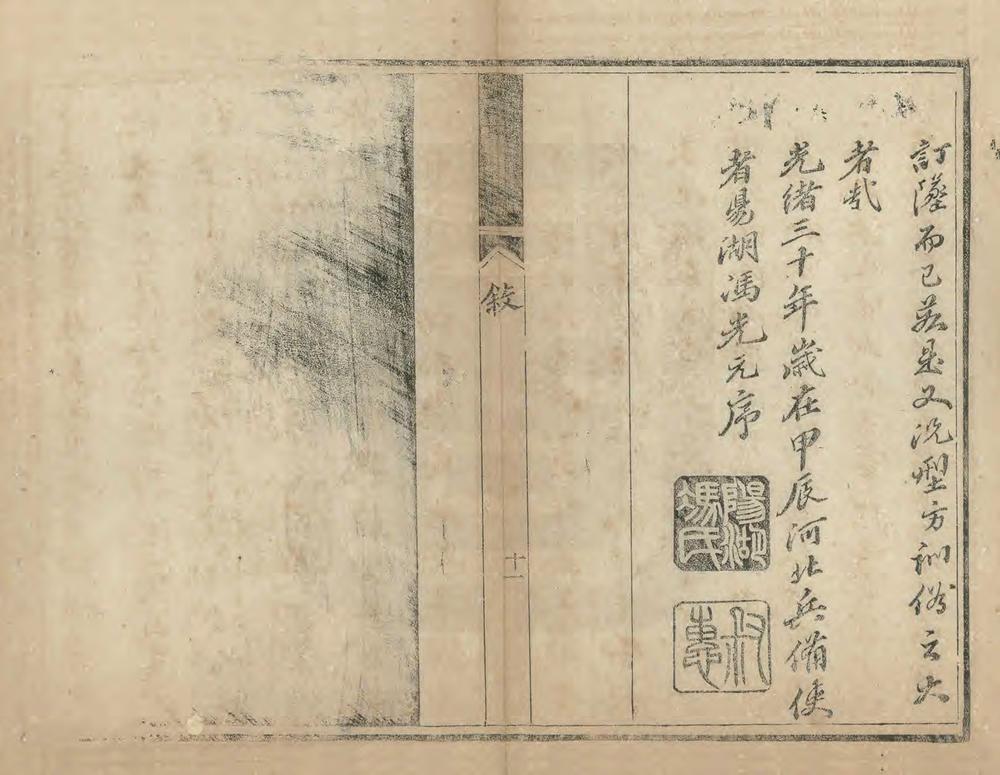 訂墜而已若是又況型方訓俗之大
者哉
光緒三十年歲在甲辰河北兵備使
者昜湖馮光元序
陽湖
馮氏
叔惠
敘
十一